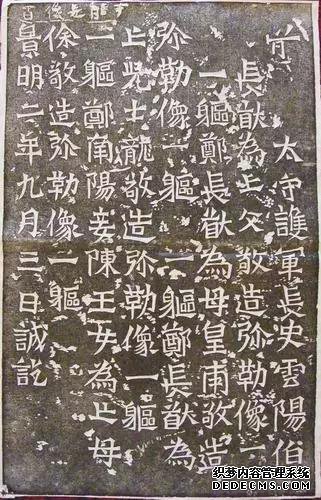 前太守護軍長史雲陽伯
長猷為亡父敬造弥勒像一
一軀鄭長猷為母皇甫敬造
弥勒像一軀 一軀鄭長猷為
亡兒士龍敬造弥勒像一軀
一軀鄭南陽妾陳王女為亡母
徐敬造弥勒像一軀
景明二年九月三日誡訖
织梦内容管理系统
DEDECMS.COM